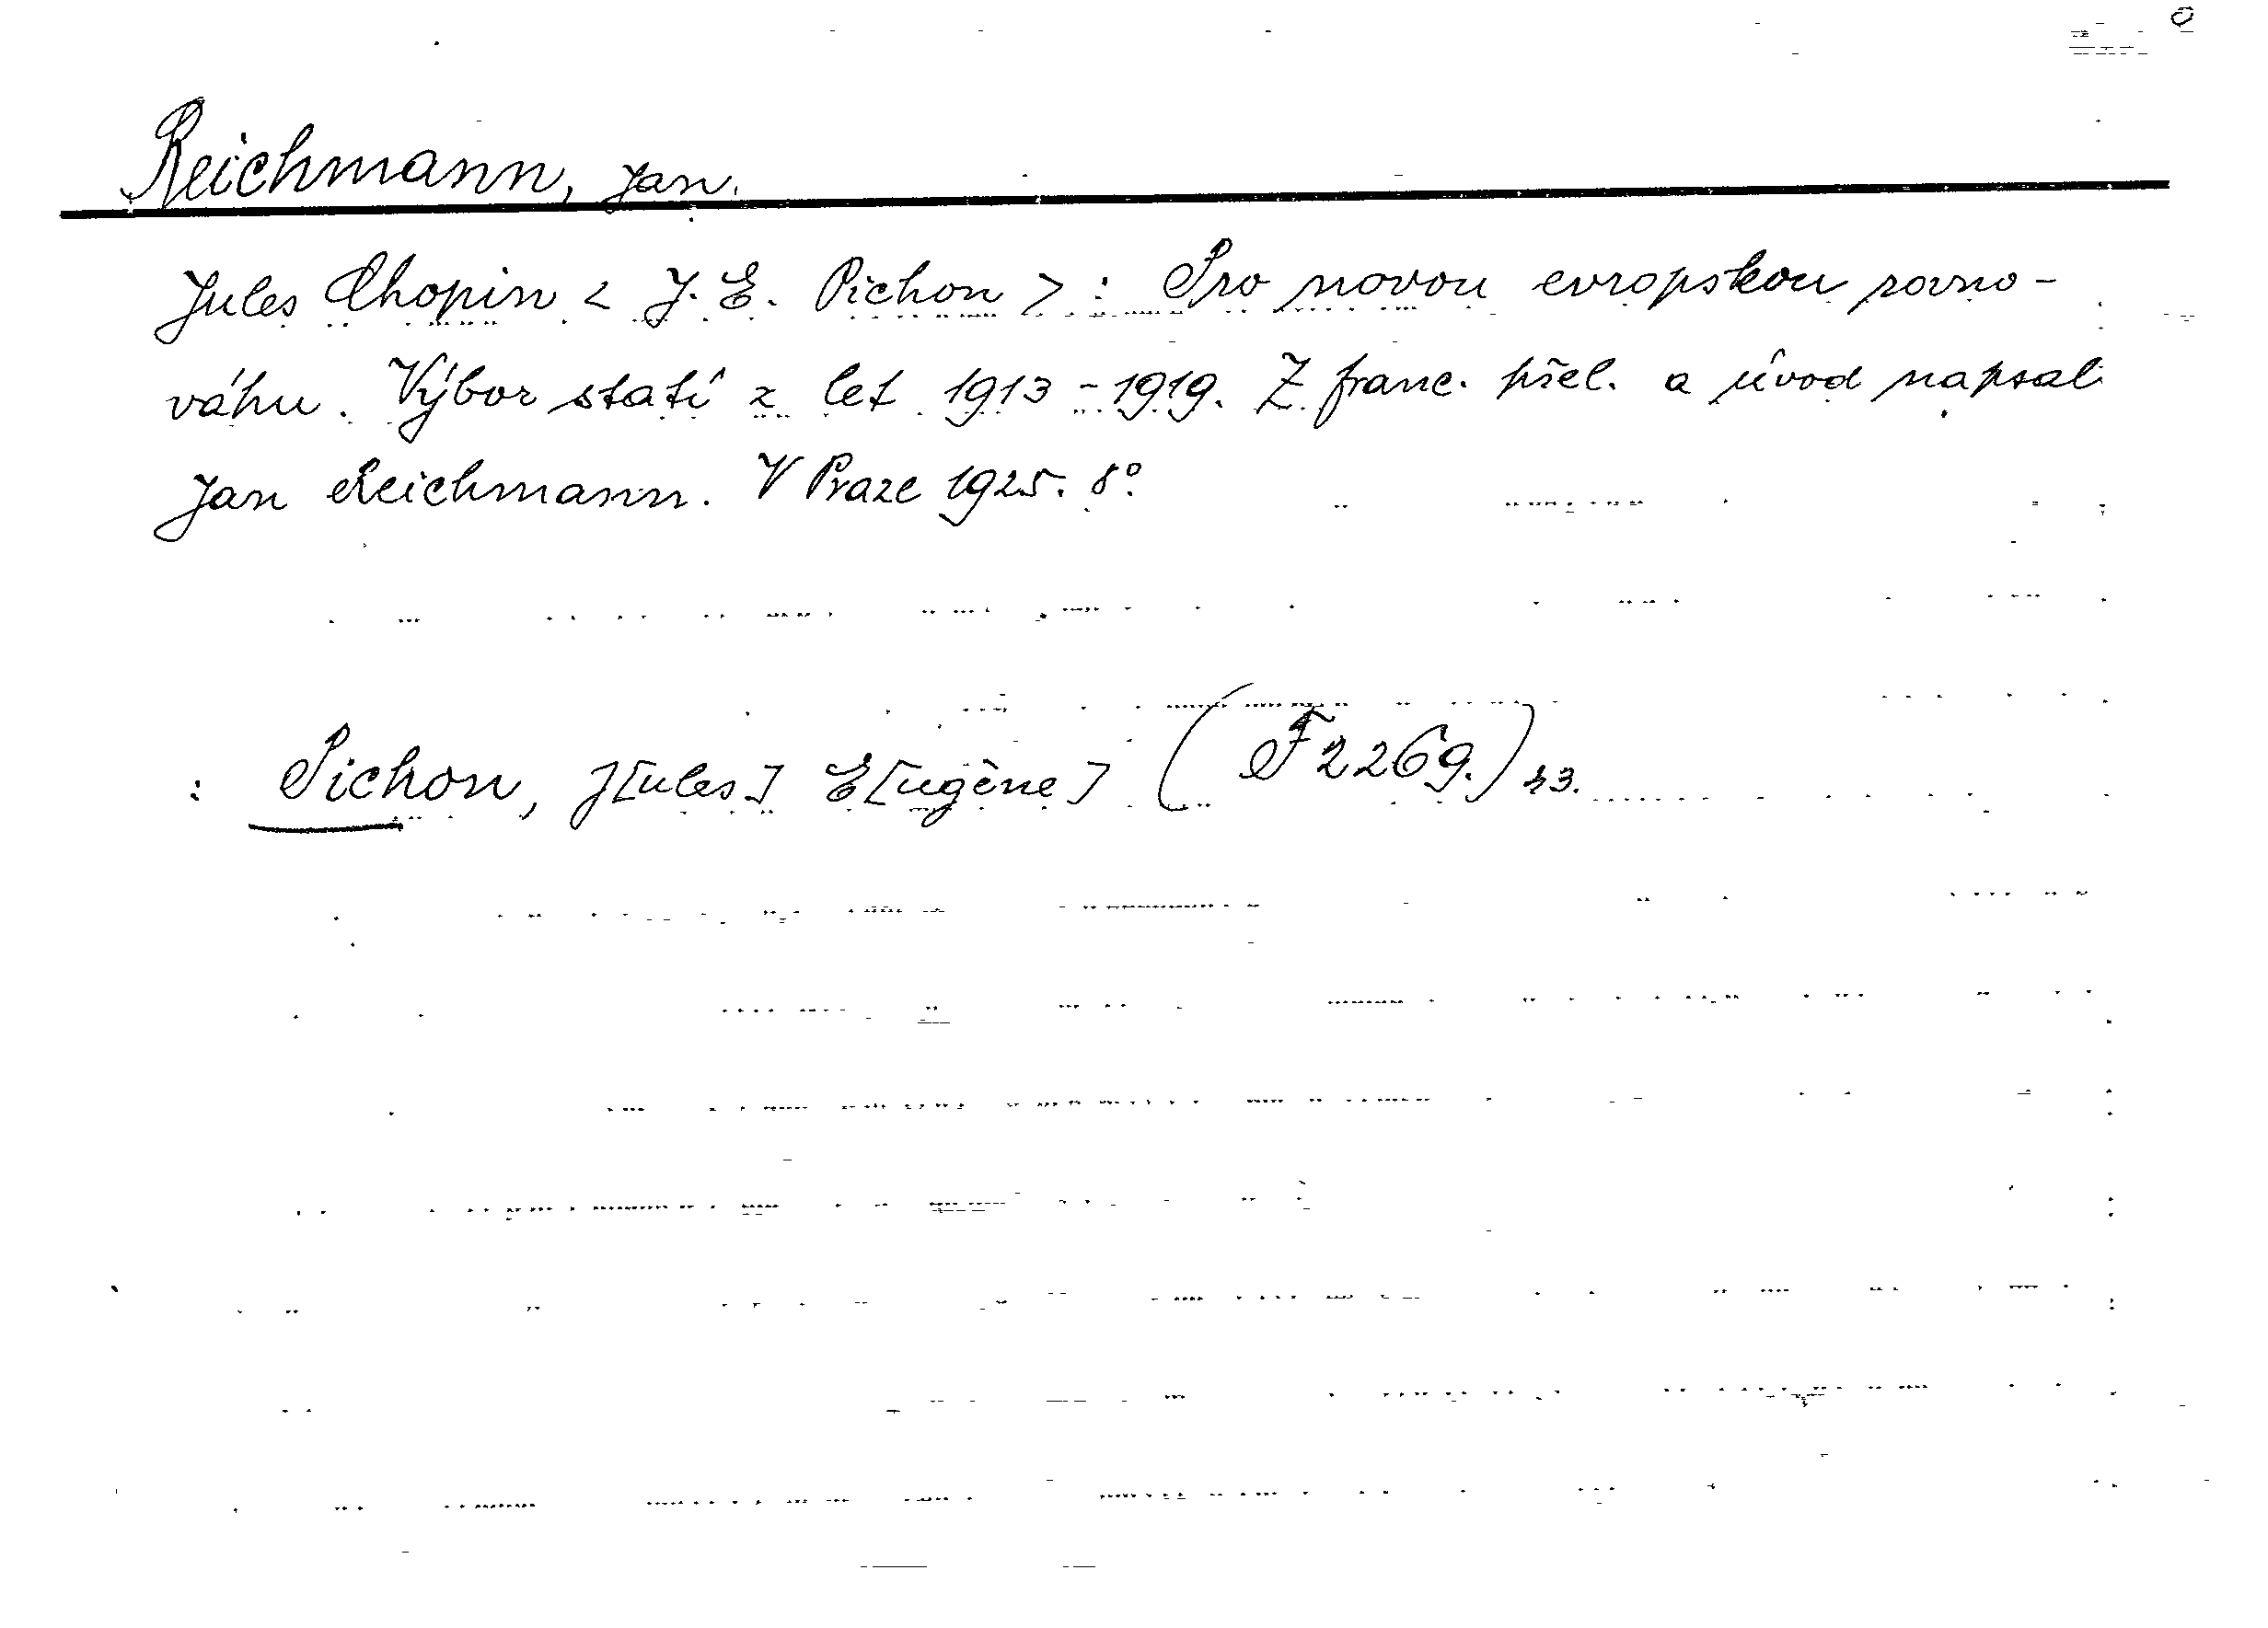 Reichmann, Jan.
Jules Chopin < J. E. Pichon > : Pro novou evropskou rovno-
váhu. Výbor statí z let 1913-1919. Z franc. přel. a úvod napsal
Jan Reichmann. V Praze 1925. 8°.
: Pichon, J[ules] E[ugène] (F 2269.)